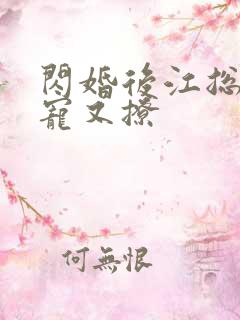 閃婚後江总
寵又撩
何無恨